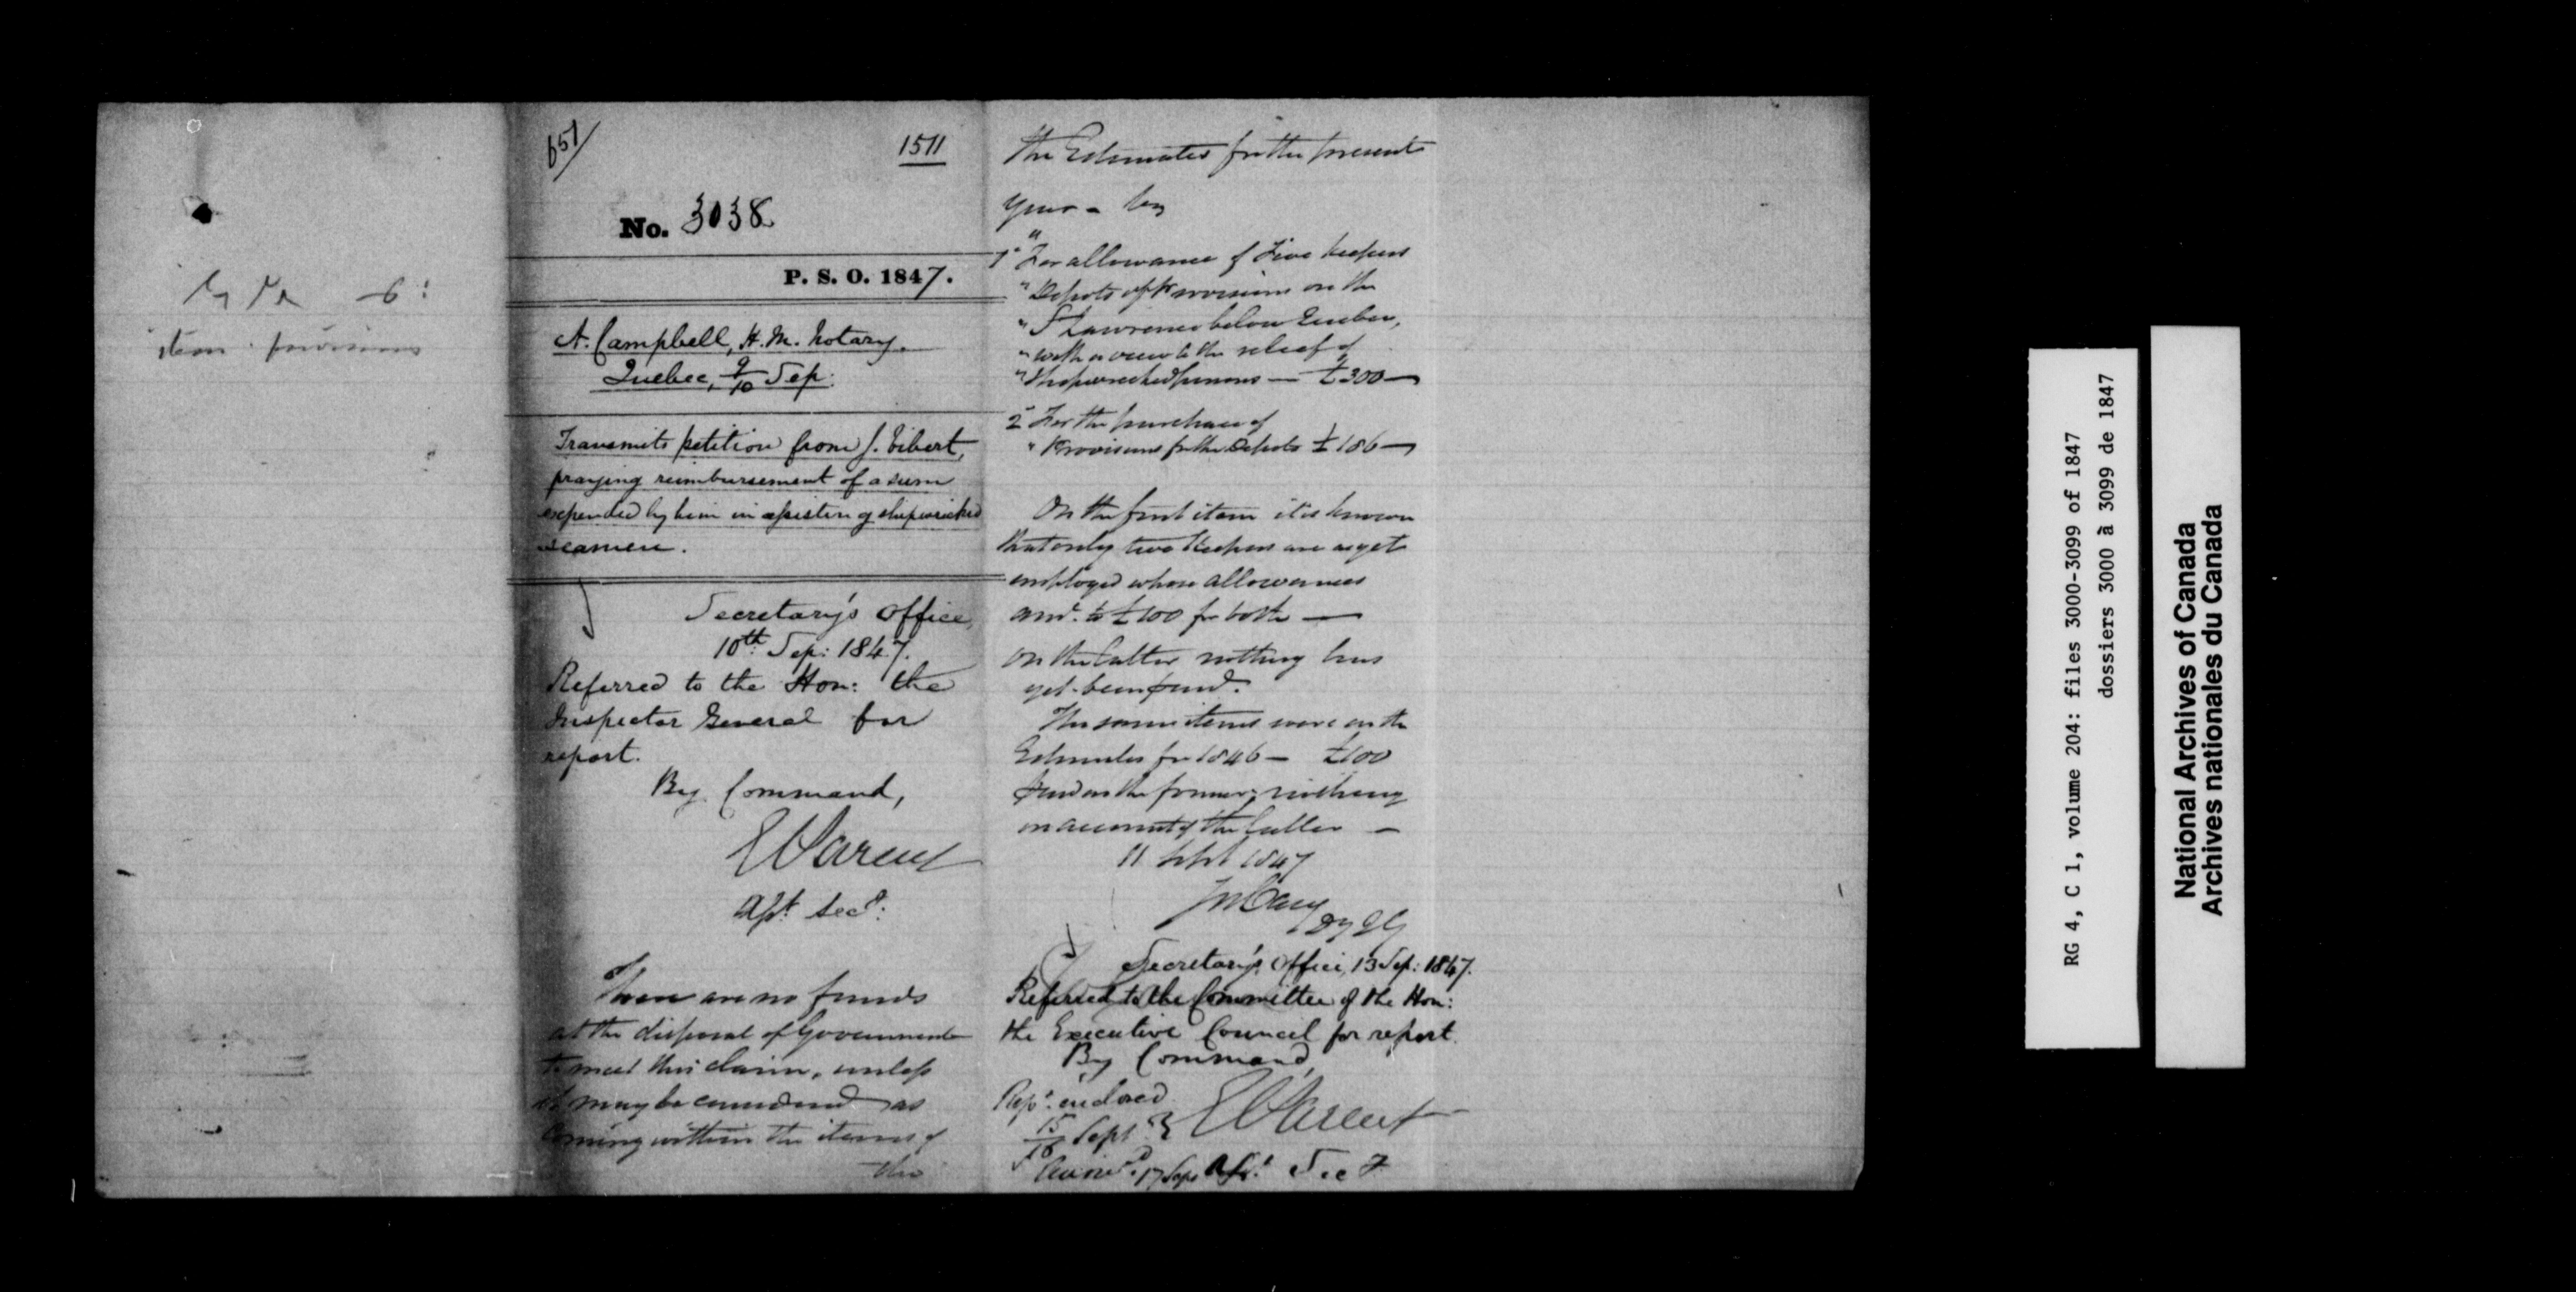 651/
1511
No. 3038
P. S. O. 1847.
A. Campbell, H. M. Notary.
Quebec, 9/10 Sep:
Transmits petition from J. Tibert,
praying reimbursement of a sum
expended by him in assisting shipwrecked
seamen.
Secretary's Office,
10th Sep: 1847.
Referred to the Hon: the
Inspector General for
report.
By Command,
E Parent
Asst. Secy.
There are no funds
at the disposal of Government
to meet this claim, unless
it may be considered as
coming within the items of
the
the Estimates for the present
year -
1o "For allowance of Five Keepers
" Depots of Provisions on the
" St Lawrence below Quebec,
" with a view to the relief of
" Shipwrecked persons — £300 —
2o For the purchase of
" Provisions for the Depots £186 —
On the first item it is known
that only two Keepers are as yet
employed whose allowances
amt. to £100 for both —
On the latter nothing has
yet been paid.
The same items were on the
Estimates for 1846 — £100
paid on the former; nothing
on account of the latter —
11 Sept 1847
Jos Cary
Dy I G
Secretary's Office, 13 Sep: 1847.
Referred to the Committee of the Hon:
the Executive Council for report.
By Command,
Rept. enclosed
15/16 Sept
E Parent
17 Sept Asst. Secy
provisions
RG 4, C 1, volume 204: files 3000-3099 of 1847
dossiers 3000 à 3099 de 1847
National Archives of Canada
Archives nationales du Canada